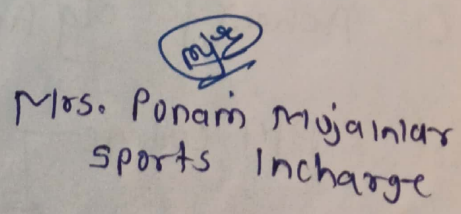 Mrs. Ponam Mujalnlar
Sports Incharge